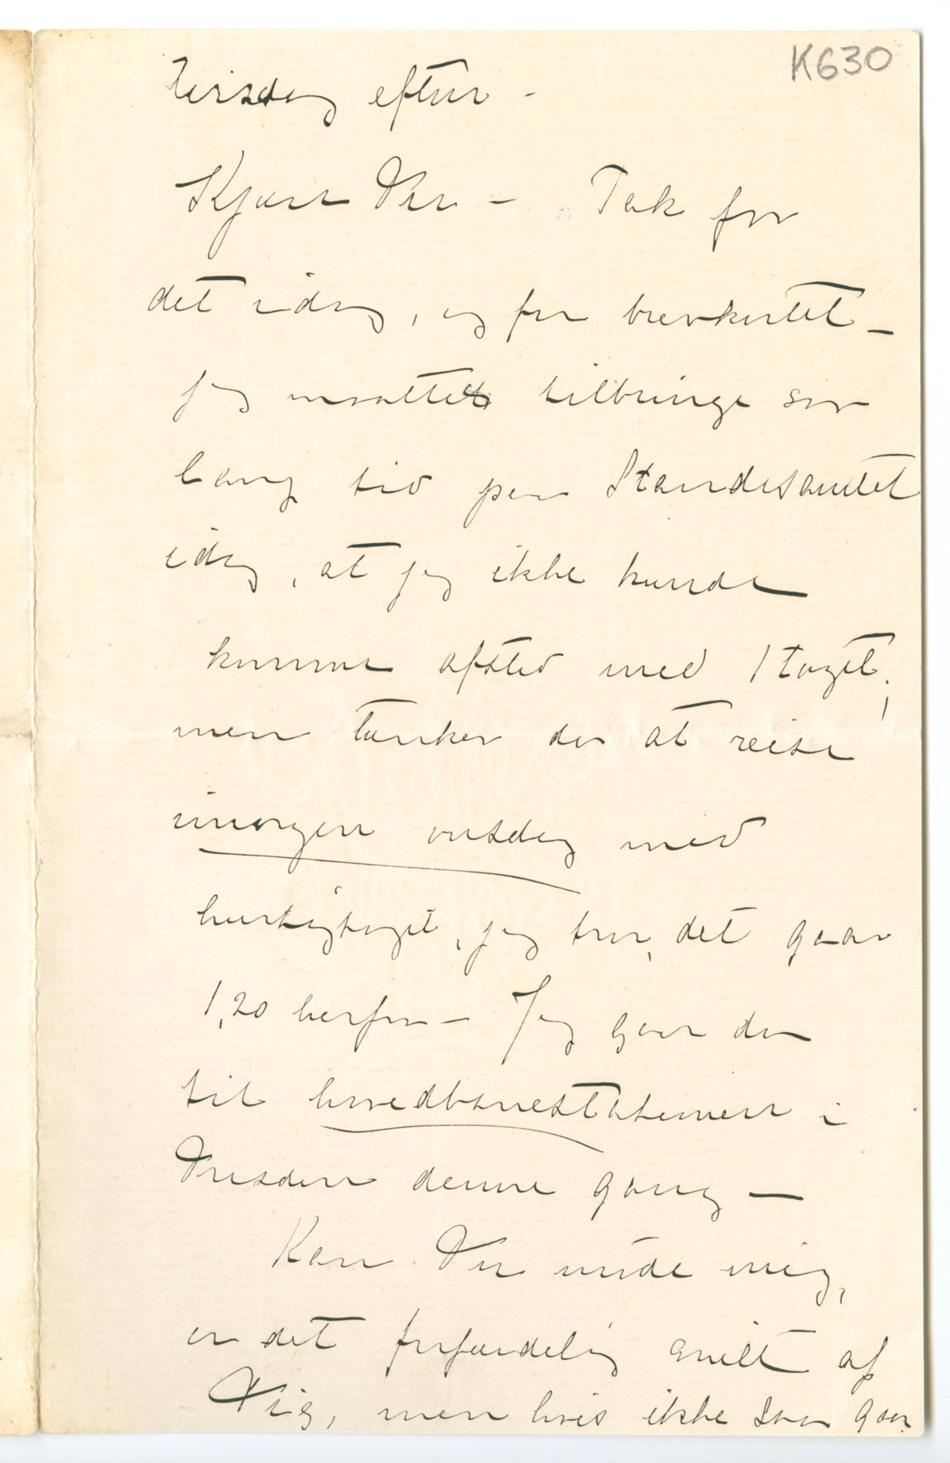 K630
Tirsdag efter -
Kjære Du - Tak for
det idag, og for brevkortet -
jeg maatte tilbringe saa
lang tid paa Standesamtet
idag, at jeg ikke kunde
komme afsted med 1 toget,
men tænker da at reise
imorgen onsdag med
hurtigtoget, jeg tror, det gaar
1,20 herfra - Jeg gaar da
til hovedbanestationen i
Dresden denne gang -
Kan Du møde mig,
er det forfærdelig snilt af
Dig, men hvis ikke saa gaar